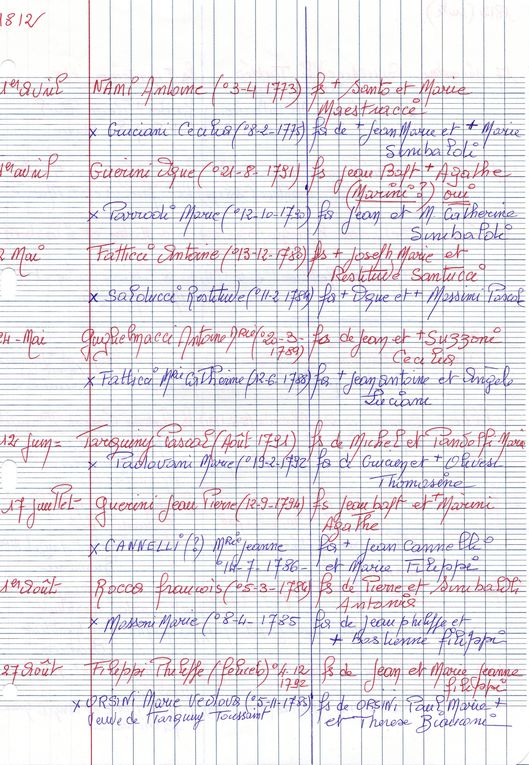 1812
1er avril NAMI Antoine (°3-4 1773) fs + Santo et Marie
Maestracci
x Cruciani Cecilia (°8-2-1775) fa de + Jean Marie et + Marie
Sinibaldi
1er avril Guerini Dque (°21-8-1791) fs Jean Bapt + Agathe
(Marini ?) oui
x Parrodi Marie (°12-10-1790) fa Jean et M. Catherine
Sinibaldi
2 Mai Fattici Antoine (°13-12-1788) fs + Joseph Marie et
Restitude Santucci
x Salducci Restitude (°11-2 1789) fa + Dque et + Massimi Pascal
24-Mai Guglielmacci Antoine Mrie (°20-3-
1789) fs de Jean et + Suzzoni
Cecilia
x Fattici Mrie Catherine (12-6 1788) fa + Jean Antoine et Angèle
Luciani
12 Juin = Tarquiny Pascal (Août 1791) fs de Michel et Pandolfi Marie
x Padovani Marie (°19-2-1792 fa d' Crucien et + Olivesi
Thomasine
17 Juillet- Guerini Jean Pierre (12-9-1794) fs Jean bapt et + Marini
Agathe
x CANNELLI (?) Mrie Jeanne fa + Jean Cannelli
°14-7-1786- et Marie Filippi
1er Août Rocca francois (°5-3-1784) fs de Pierre et Sinibaldi
Antonia
x Massoni Marie (°8-4-1785 fa de Jean philippe et
+ Bastienne filippi
27 Août Filippi Philippe (feliceto) °4-12
1792 fs de Jean et Marie Jeanne
filippi
x ORSINI Marie Vedova (°5-11-1785) fs de ORSINI Paul Maria +
veuve de Tarquiny Toussaint et Therese